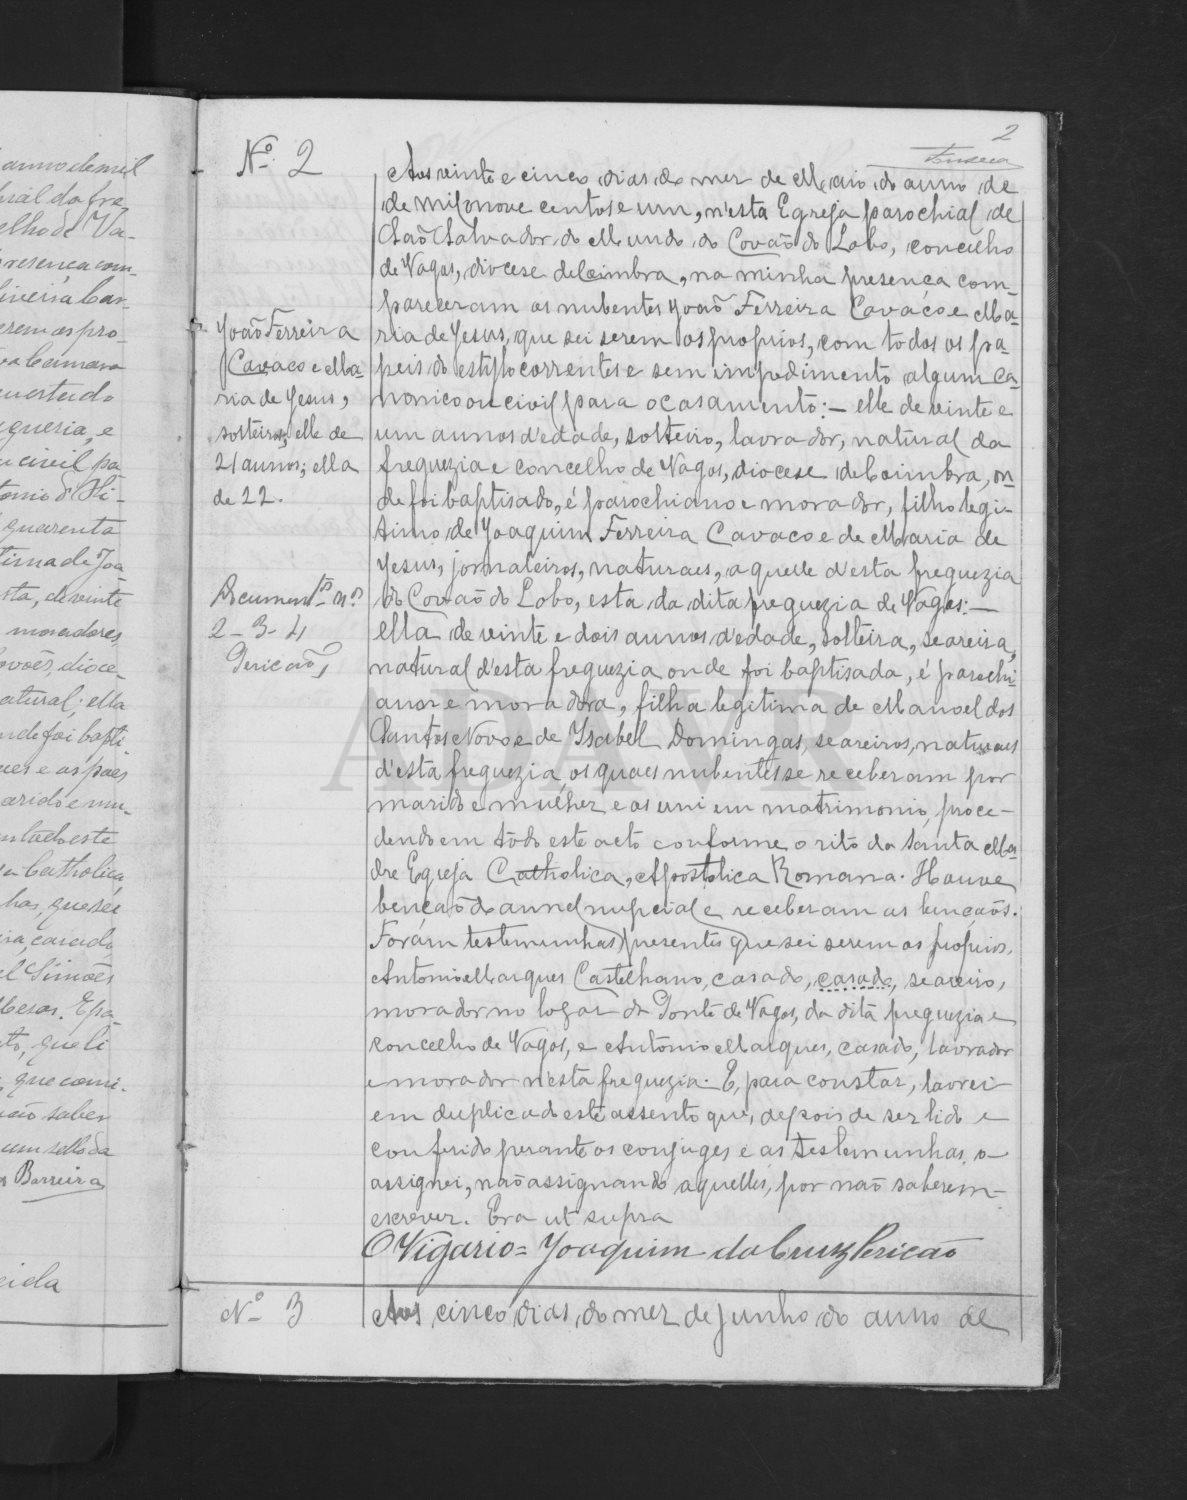 2
Fonseca
Nº 2
João Ferreira
Cavaco e Ma-
ria de Jesus,
solteiros, elle de
21 annos; ella
de 22.
Documentos nos
2-3-4
Pericão
Aos vinte e cinco dias do mez de Maio do anno de
de mil nove centos e um, n'esta Egreja parochial de
São Salvador do Mundo do Covão do Lobo, concelho
de Vagos, diocese de Coimbra, na minha presença com-
pareceram os nubentes João Ferreira Cavaco e Ma-
ria de Jesus, que sei serem os proprios, com todos os pa-
peis do estylo correntes e sem impedimento algum ca-
nonico ou civil para o casamento: — elle de vinte e
um annos d'edade, solteiro, lavrador, natural da
freguezia e concelho de Vagos, diocese de Coimbra, on-
de foi baptisado, é parochiano e morador, filho legi-
timo de Joaquim Ferreira Cavaco e de Maria de
Jesus, jornaleiros, naturaes, aquelle d'esta freguezia
do Covão do Lobo, esta da dita freguezia de Vagos: —
ella de vinte e dois annos d'edade, solteira, seareira,
natural d'esta freguezia onde foi baptisada, é parochi-
ana e moradora, filha legitima de Manoel dos
Santos Novo e de Isabel Domingas, seareiros, naturaes
d'esta freguezia, os quaes nubentes se receberam por
marido e mulher e os uni em matrimonio, proce-
dendo em todo este acto conforme o rito da Santa Ma-
dre Egreja Catholica, Apostolica Romana. Houve
benção do annel nupcial e receberam as bençãos.
Foram testemunhas presentes que sei serem os proprios,
Antonio Marques Castelhano, casado, casado, seareiro,
morador no logar da Ponte de Vagos, da dita freguezia e
concelho de Vagos, e Antonio Marques, casado, lavrador
e morador n'esta freguezia. E, para constar, lavrei
em duplicado este assento que, depois de ser lido e
conferido perante os conjuges e as testemunhas, o
assignei, não assignando aquelles, por não saberem
escrever. Era ut supra
O Vigario = Joaquim da Cruz Pericão
Nº 3
Aos cinco dias do mez de junho do anno de
ADAVR
anno de mil
elho de Va-
presença com-
erem os pro-
quarenta
tima de Joa
moradores,
atural; ella
nde foi bapti-
es e os paes
arido e mu-
este
Catholica,
has, que sei
casado,
el Simões
que li
saber
um sello da
Barreira